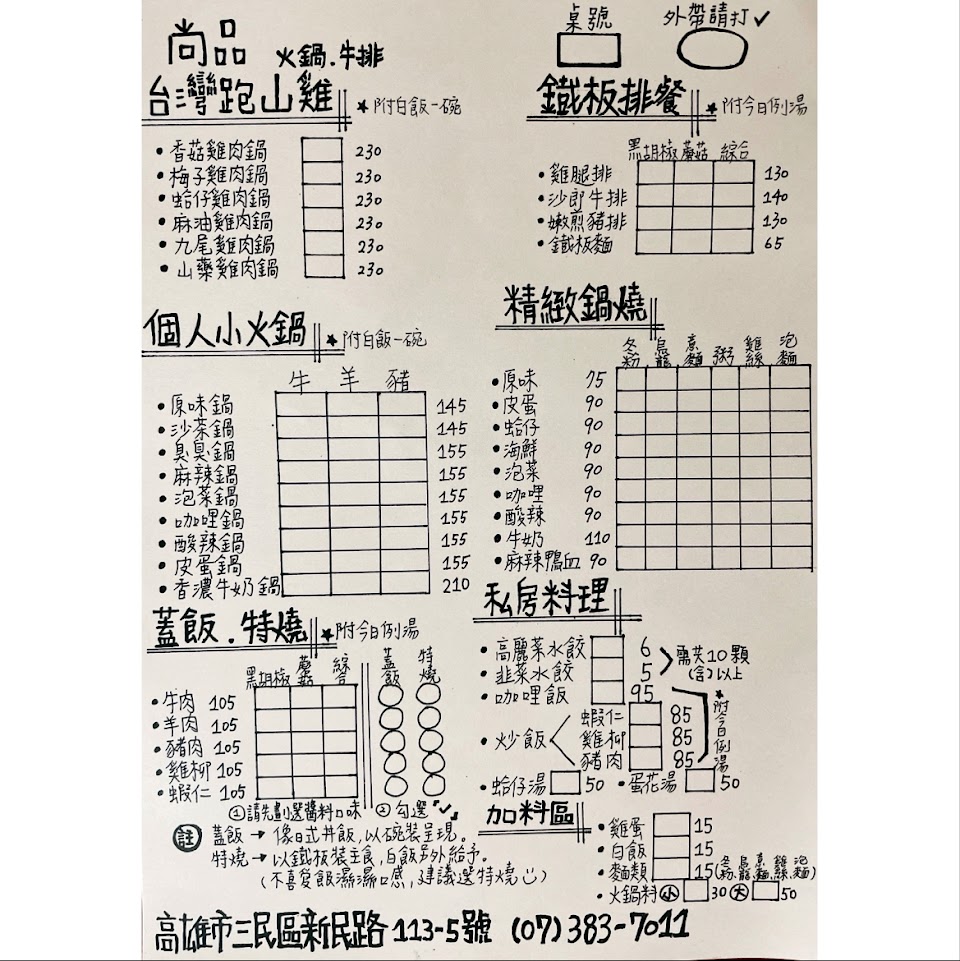 尚品 火鍋.牛排
桌號
外帶請打✓
台灣跑山雞 ★附白飯一碗
•香菇雞肉鍋 230
•梅子雞肉鍋 230
•蛤仔雞肉鍋 230
•麻油雞肉鍋 230
•九尾雞肉鍋 230
•山藥雞肉鍋 230
鐵板排餐 ★附今日例湯
黑胡椒 蘑菇 綜合
•雞腿排 130
•沙郎牛排 140
•嫩煎豬排 130
•鐵板麵 65
個人小火鍋 ★附白飯一碗
牛 羊 豬
•原味鍋 145
•沙茶鍋 145
•臭臭鍋 155
•麻辣鍋 155
•泡菜鍋 155
•咖哩鍋 155
•酸辣鍋 155
•皮蛋鍋 155
•香濃牛奶鍋 210
精緻鍋燒
冬粉 烏龍 意麵 粥 雞絲 泡麵
•原味 75
•皮蛋 90
•蛤仔 90
•海鮮 90
•泡菜 90
•咖哩 90
•酸辣 90
•牛奶 110
•麻辣鴨血 90
蓋飯.特燒 ★附今日例湯
黑胡椒 蘑菇 綜合 蓋飯 特燒
•牛肉 105
•羊肉 105
•豬肉 105
•雞柳 105
•蝦仁 105
①請先劃選醬料口味 ②勾選「✓」
註 蓋飯→像日式丼飯,以碗裝呈現。
特燒→以鐵板裝主食,白飯另外給予。
(不喜愛飯濕濕口感,建議選特燒)
私房料理
•高麗菜水餃 6
•韭菜水餃 5
需共10顆
(含)以上
•咖哩飯 95
•炒飯
蝦仁 85
雞柳 85
豬肉 85
★附今日例湯
•蛤仔湯 50 •蛋花湯 50
加料區
•雞蛋 15
•白飯 15
•麵類 15(冬粉.烏龍.意麵.雞絲.泡麵)
•火鍋料 小 30 大 50
高雄市三民區新民路113-5號 (07)383-7011